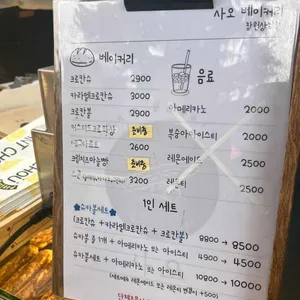 사오 베이커리
창원상남
베이커리
음료
크로칸슈 2900
카라멜크로칸슈 3000
크로칸볼 2900
준비중
2600
크림치즈마늘빵 준비중
3200
아메리카노 2000
복숭아아이스티 2000
레몬에이드 2500
레몬티 2500
1인 세트
★슈카볼세트★
(크로칸슈 + 카라멜크로칸슈 + 크로칸볼) 8800 → 8500
슈카볼 중 1개 + 아메리카노 또는 아이스티 4900 → 4500
슈카볼세트 + 아메리카노 또는 아이스티 10800 → 10000
(세트메뉴 레몬에이드 또는 레몬티 변경시 +500)